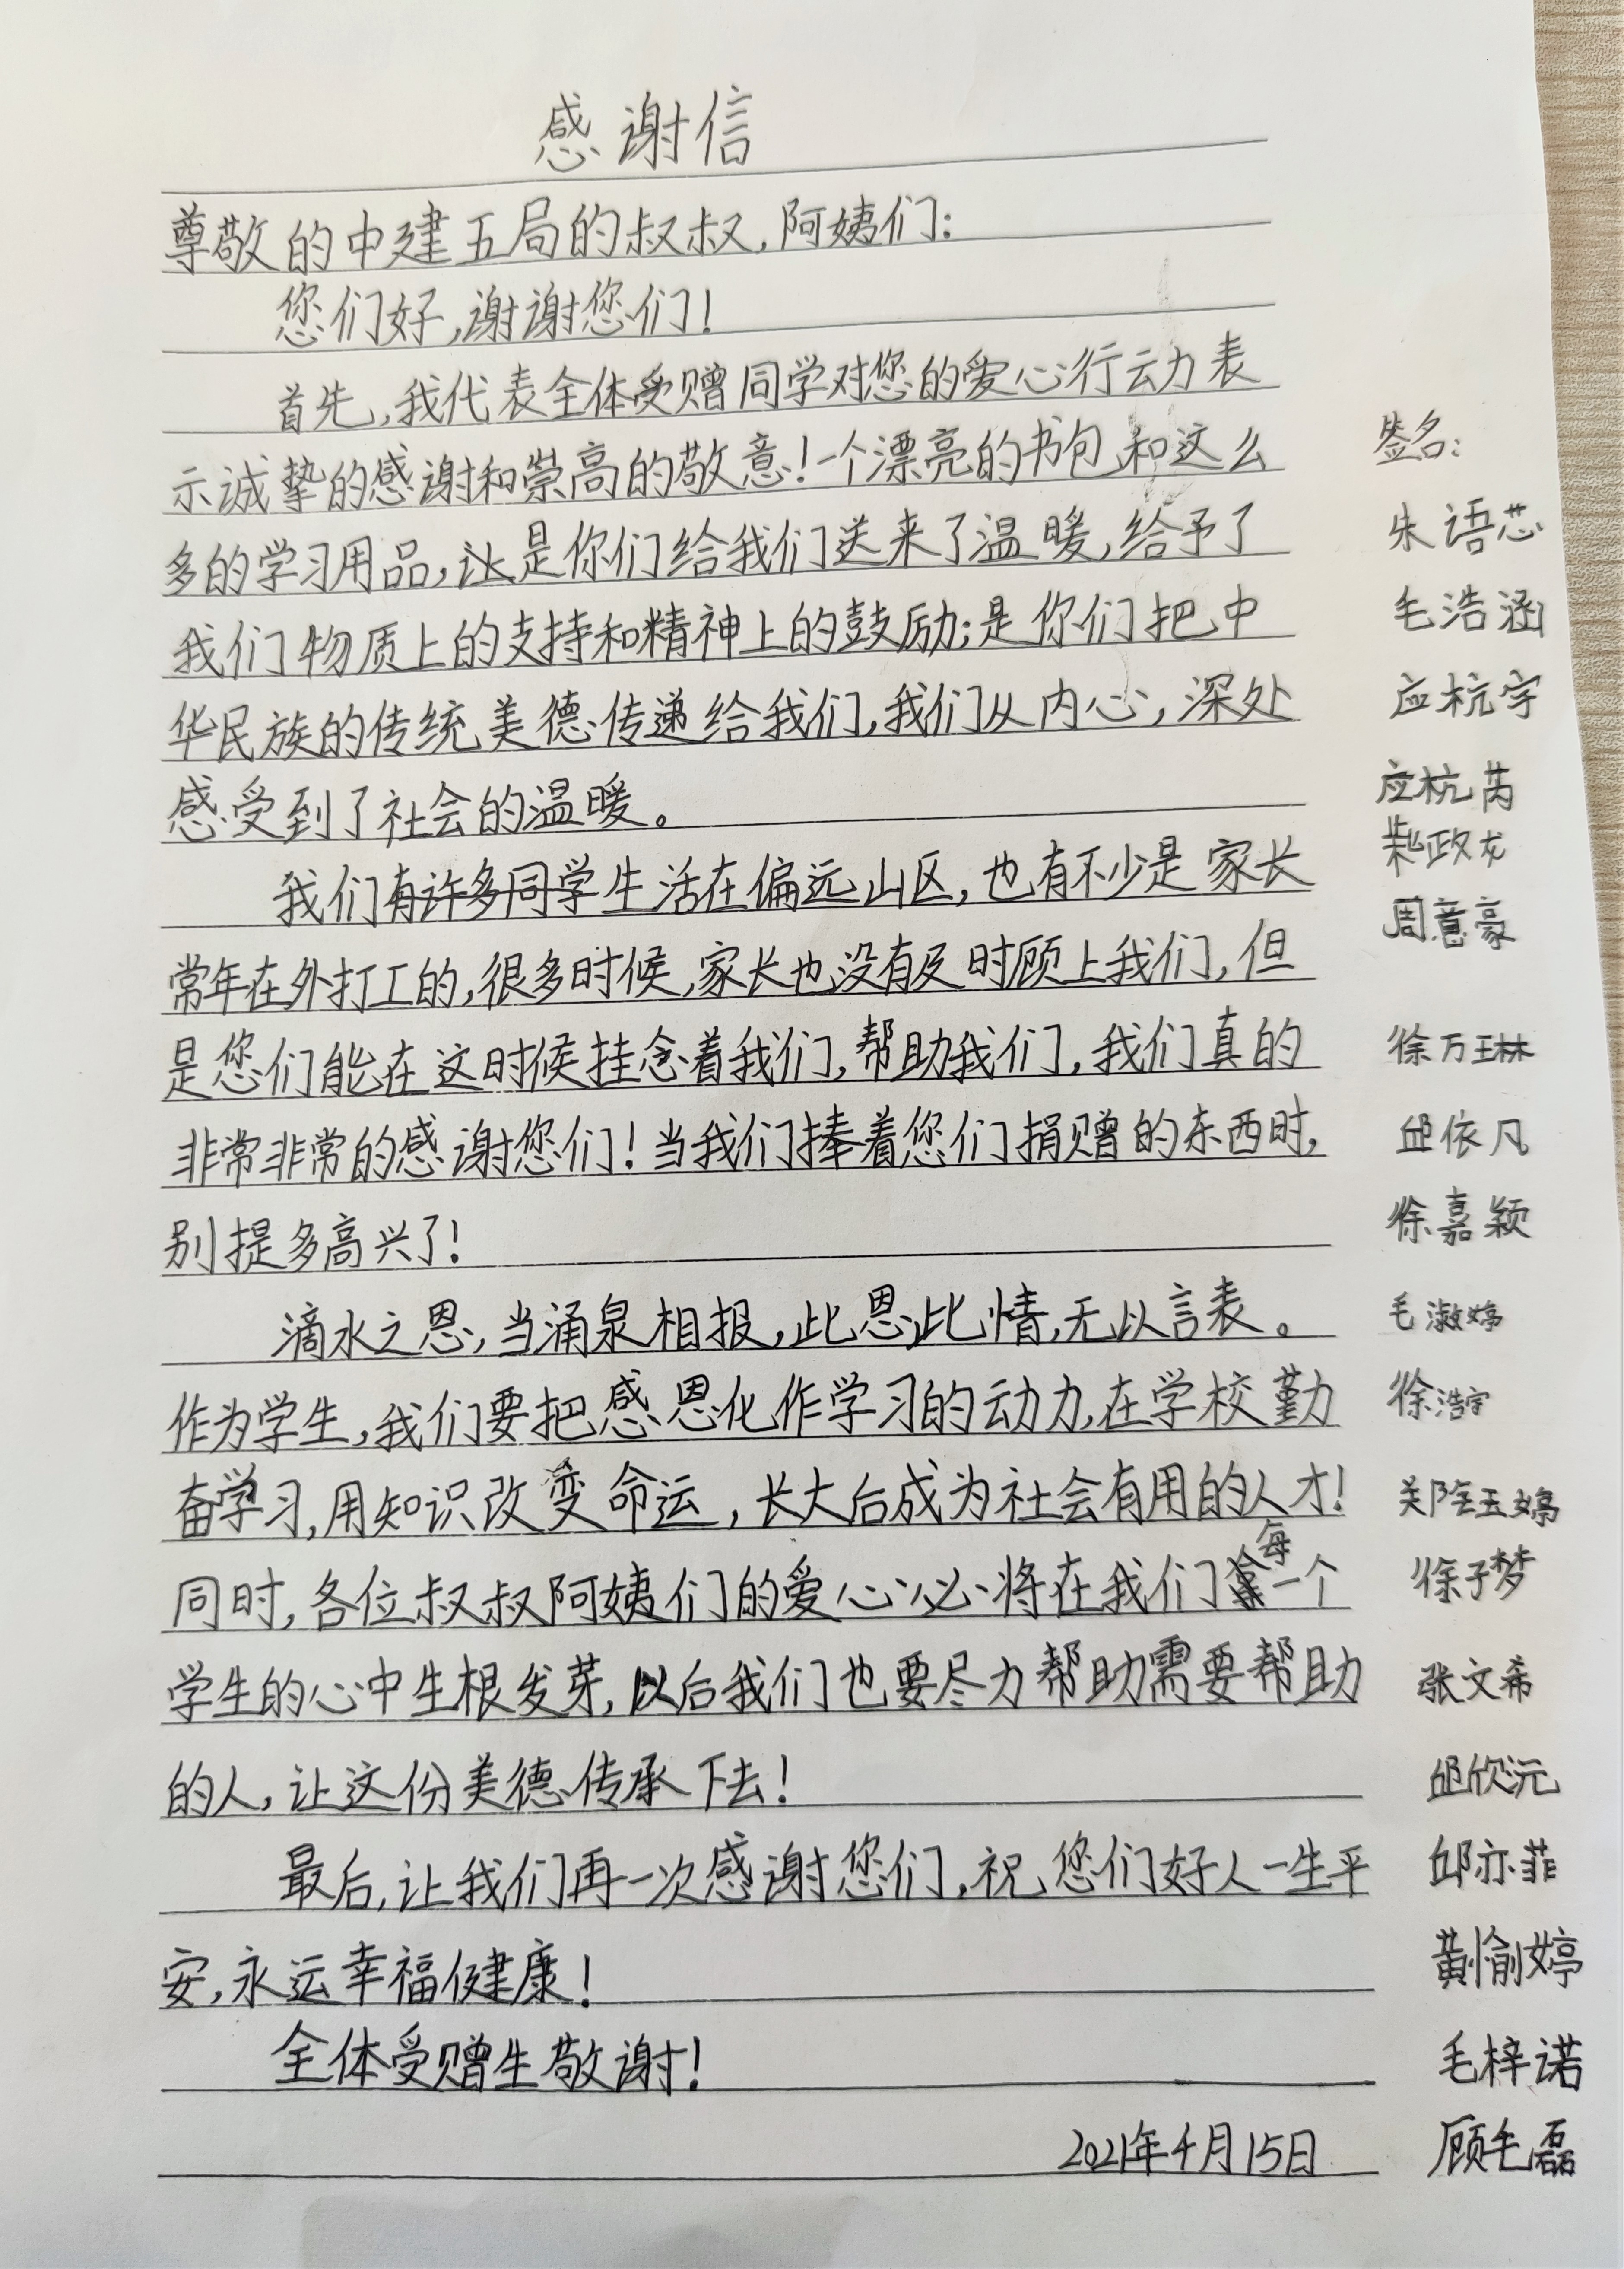 感谢信
尊敬的中建五局的叔叔,阿姨们:
您们好,谢谢您们!
首先,我代表全体受赠同学对您的爱心行动力表
示诚挚的感谢和崇高的敬意!一个漂亮的书包和这么
多的学习用品,让是你们给我们送来了温暖,给予了
我们物质上的支持和精神上的鼓励;是你们把中
华民族的传统美德传递给我们,我们从内心,深处
感受到了社会的温暖。
我们有许多同学生活在偏远山区,也有不少是家长
常年在外打工的,很多时候,家长也没有及时顾上我们,但
是您们能在这时候挂念着我们,帮助我们,我们真的
非常非常的感谢您们!当我们捧着您们捐赠的东西时,
别提多高兴了!
滴水之恩,当涌泉相报,此恩此情,无以言表。
作为学生,我们要把感恩化作学习的动力,在学校勤
奋学习,用知识改变命运,长大后成为社会有用的人才!
同时,各位叔叔阿姨们的爱心必将在我们每一个
学生的心中生根发芽,以后我们也要尽力帮助需要帮助
的人,让这份美德传承下去!
最后,让我们再一次感谢您们,祝您们好人一生平
安,永远幸福健康!
全体受赠生敬谢!
2021年4月15日
签名:
朱语芯
毛浩涵
应杭宇
应杭芮
柴政龙
周意豪
徐万琳
邱依凡
徐嘉颖
毛淑婷
徐浩宇
徐子梦
张文希
邱欣沅
邱亦菲
黄愉婷
毛梓诺
顾毛磊